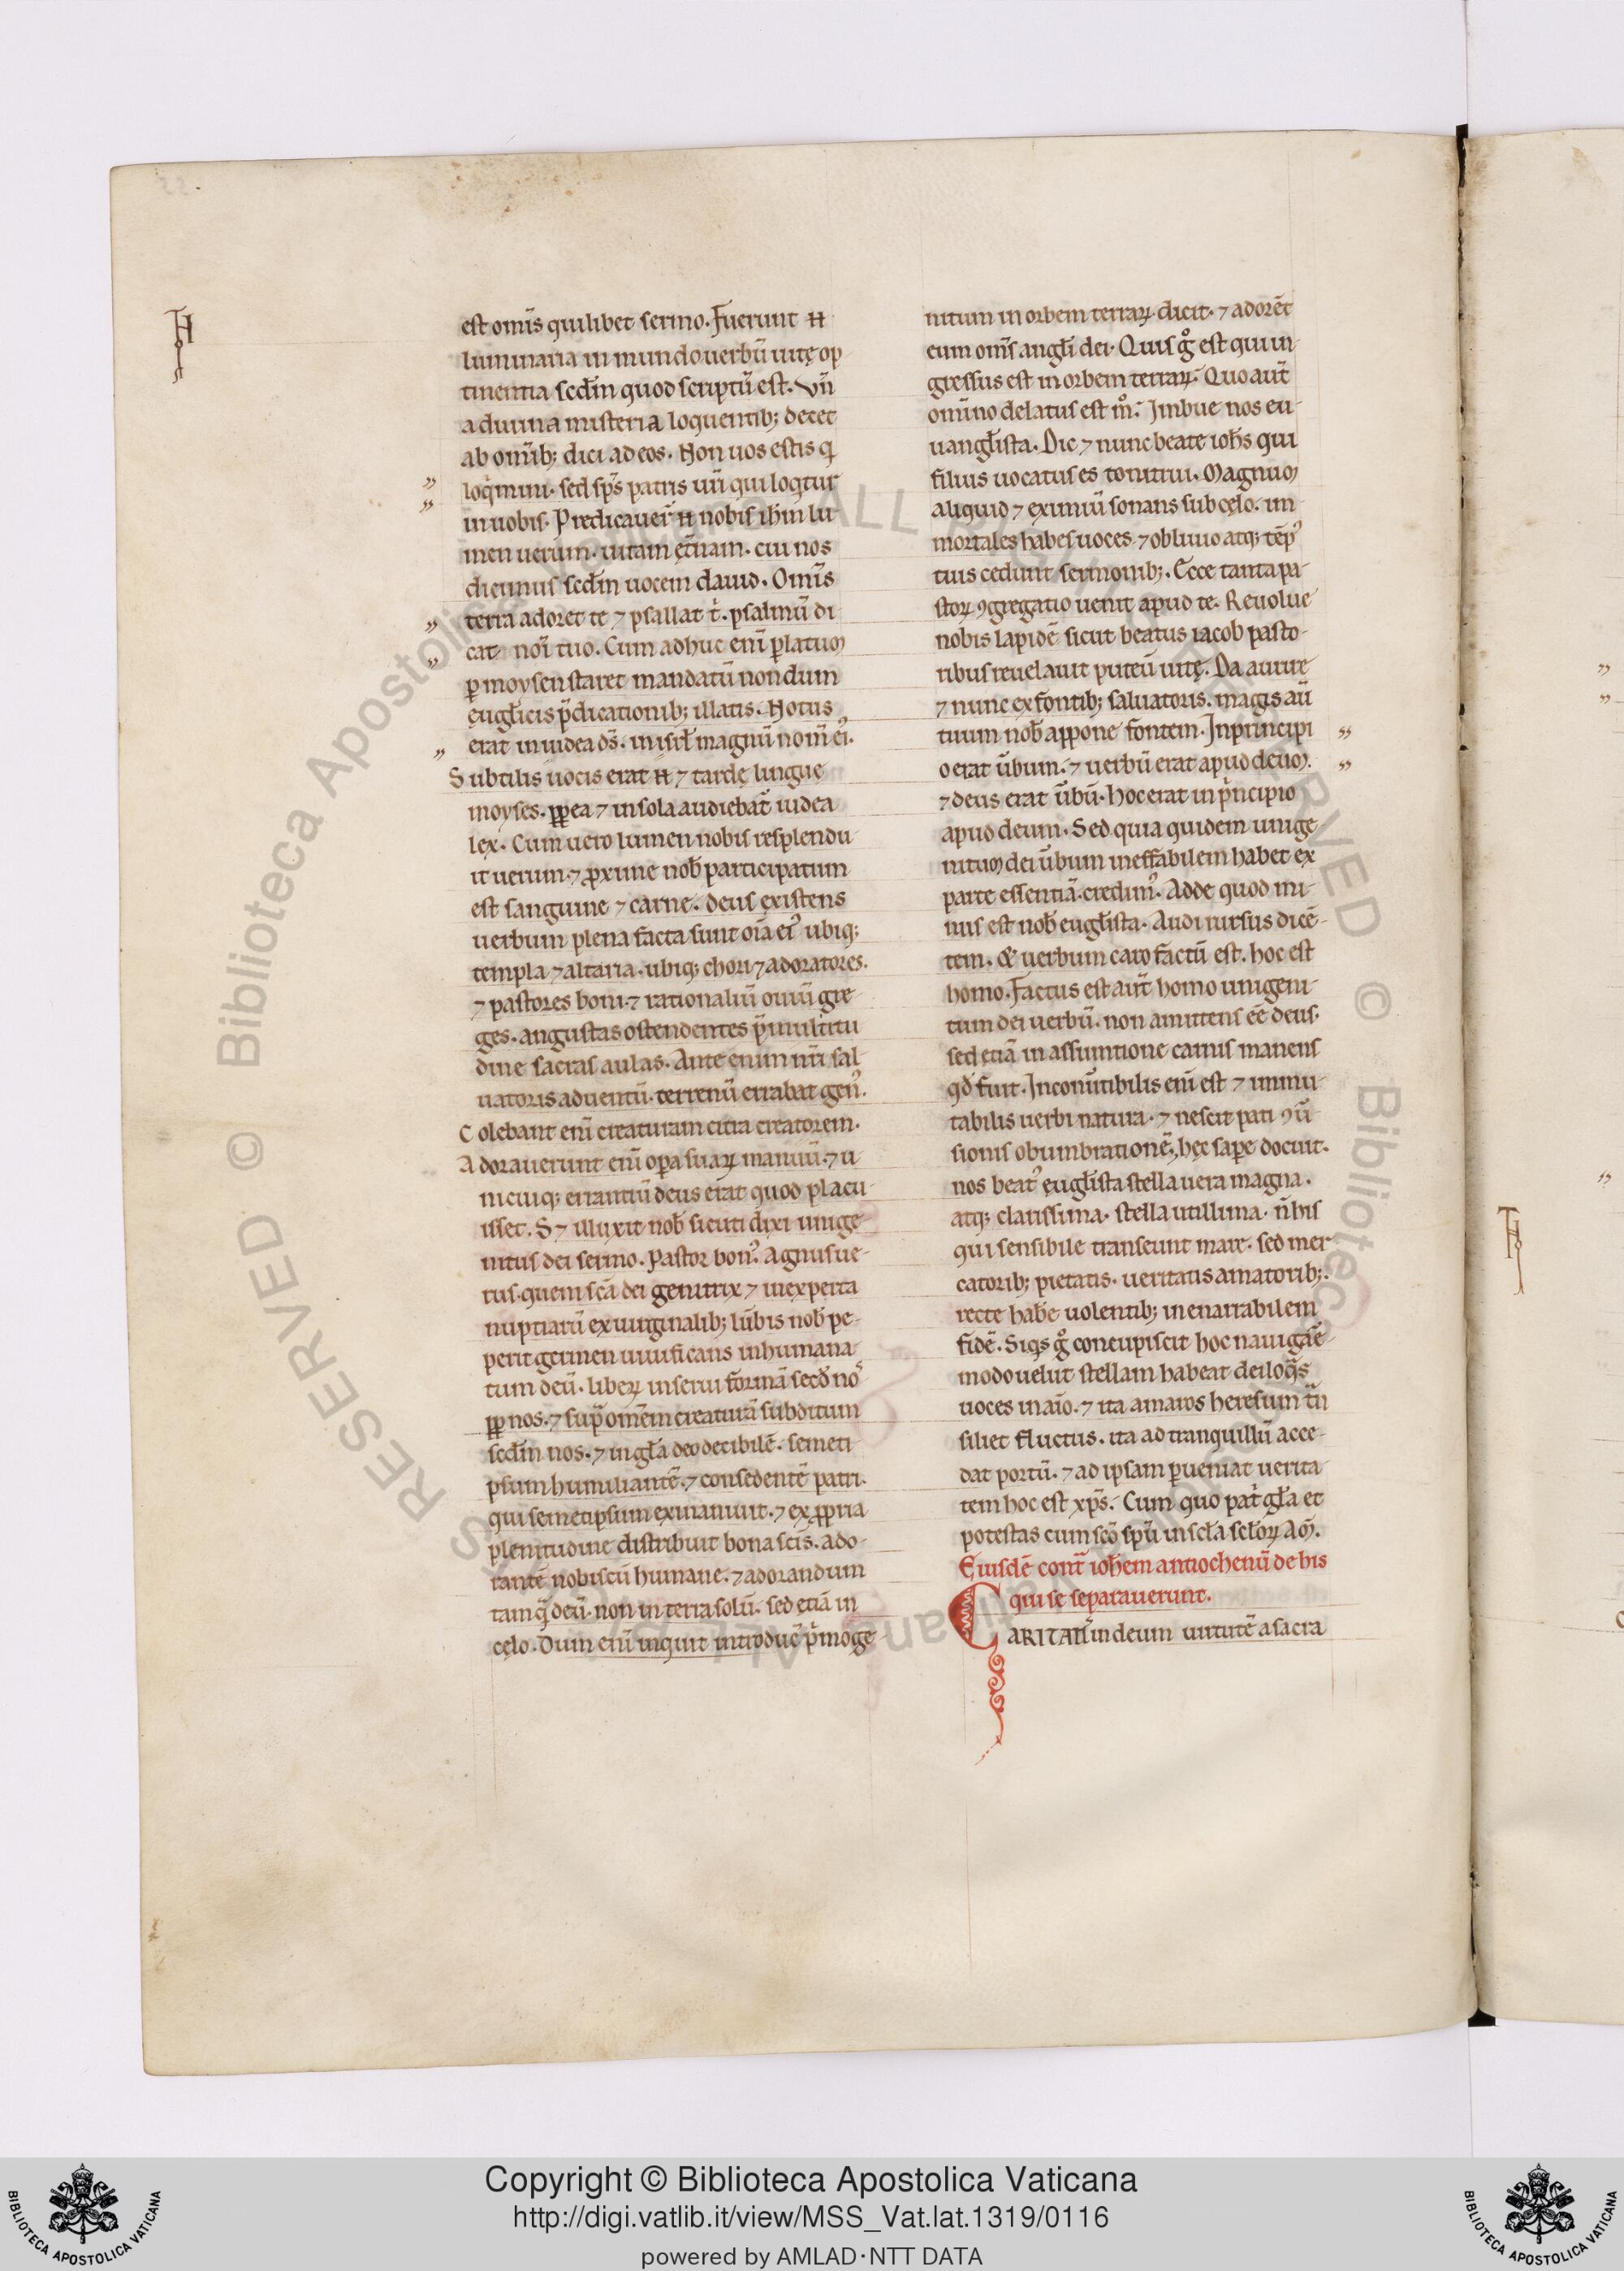 est om̄s quilibet sermo. Fuerunt n̄
luminaria in mundo uerbū uitę op
tinentia sed̄m quod scriptū est. Vn̄
a diuina misteria loquentib; decet
ab om̄ib; dici ad eos. Non uos estis q̇
loq̇mini. sed sp̄s patris ur̄i qui loq̇tur
in uobis. Predicauer̄ n̄ nobis ih̄m lu
men uerum. uitam ęt̄nam. cui nos
dicimus sed̄m uocem dauid. Om̄is
terra adoret te ⁊ psallat ṫ. psalmū di
cat noī tuo. Cum adhuc enī ꝑlatum
ꝑ moysen staret mandatū nondum
euḡlicis p̄dicationib; illatis. Notus
erat in iudea d̄s. in isrł magnū nom̄ ei᾽.
Subtilis uocis erat n̄ ⁊ tardę linguę
moyses. ꝓpea ⁊ in sola audiebat̄ iudea
lex. Cum uero lumen nobis resplendu
it uerum. ⁊ ꝓxime nob̄ participatum
est sanguine ⁊ carne. deus existens
uerbum plena facta sunt oīa ei᾽ ubiq;
templa ⁊ altaria. ubiq; chori ⁊ adoratores.
⁊ pastores boni. ⁊ rationaliū ouiū gre
ges. angustas ostendentes p̄ multitu
dine sacras aulas. Ante enim nr̄i sal
uatoris aduentū. terrenū errabat gen᾽.
Colebant enī creaturam citra creatorem.
Adorauerunt enī oꝑa suaꝝ manuū. ⁊ u
nicuiq; errantiū deus erat quod placu
isset. S⁊ illuxit nob̄ sicuti dixi unige
nitus dei sermo. Pastor bon᾽. agnus ue
rus. quem sc̄a dei genitrix ⁊ inexperta
nuptiarū ex uirginalib; lūbis nob̄ pe
perit germen uiuificans inhumana
tum deū. liberꝝ in serui formā secd̄ no᾽
ꝓp nos. ⁊ sup̄ omēm creaturā subditum
sed̄m nos. ⁊ in gl̄a deo decibilē. semeti
psum humiliantē. ⁊ consedentē patri.
qui semetipsum exinaniuit. ⁊ ex ꝓpria
plenitudine distribuit bona scīs. ado
rantē nobiscū humane. ⁊ adorandum
tamq̄ deū. non in terra solū. sed ętiā in
cęlo. Dum enī inquit introduc̄ ṗmoge
nitum in orbem terraꝝ dicit. ⁊ adorēt
eum om̄s angl̄i dei. Quis g̊ est qui in
gressus est in orbem terraꝝ. Quo aut̄
omīno delatus est m̊. Imbue nos eu
uangl̄ista. Dic ⁊ nunc beate ioh̄s qui
filius uocatus es tonitrui. Magnum
aliquid ⁊ eximiū sonans sub cęlo. im
mortales habes uoces ⁊ obliuio atq; tēp᾽
tuis cedunt sermonib;. Ecce tanta pa
storꝝ ꝯgregatio uenit apud te. Reuolue
nobis lapidē sicut beatus iacob pasto
ribus reuelauit puteū uitę. Da aurire
⁊ nunc ex fontib; saluatoris. magis aū
tuum nob̄ appone fontem. In principi
o erat ūbum. ⁊ uerbū erat apud deum.
⁊ deus erat ūbū. Hoc erat in ṗncipio
apud deum. Sed quia quidem unige
nitum dei ūbum ineffabilem habet ex
parte essentiā. credim᾽. Adde quod mi
nus est nob̄ eugl̄ista. Audi rursus dicē
tem. & uerbum caro factū est. hoc est
homo. Factus est aut̄ homo unigeni
tum dei uerbū. non amittens eē deus.
sed ętiā in assumtione carnis manens
qd̄ fuit. Inconūtibilis enī est ⁊ inmu
tabilis uerbi natura. ⁊ nescit pati ꝯū
sionis obumbrationē. hęc sape docuit.
nos beat᾽ eugl̄ista stella uera magna.
atq; clarissima. stella utillima. n̄ his
qui sensibile transeunt mare. sed mer
catorib; pietatis. ueritatis amatorib;.
recte hab̄e uolentib; inenarrabilem
fidē. Siq̇s g̊ concupiscit hoc nauigāe
modo uelut stellam habeat deiloq̄s
uoces in aīo. ⁊ ita amaros heresum tn̄
siliet fluctus. ita ad tranquillū acce
dat portū. ⁊ ad ipsam ꝑueniat uerita
tem hoc est xp̄s. Cum quo pat̄ gl̄a et
potestas cum sc̄o sp̄u in sc̄la sc̄lorꝝ am̄.
Eiusdē cont̄ ioh̄em antiochenū de his
qui se separauerunt.
CARITATĒ in deum uirtutē a sacra
Copyright © Biblioteca Apostolica Vaticana
http://digi.vatlib.it/view/MSS_Vat.lat.1319/0116
powered by AMLAD·NTT DATA